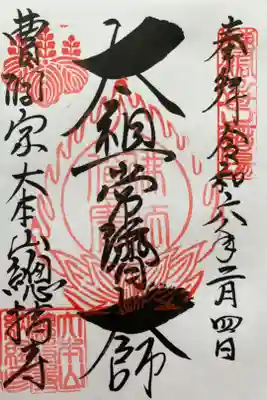 奉拝 令和六年二月四日
太祖常濟大師
曹洞宗大本山總持寺